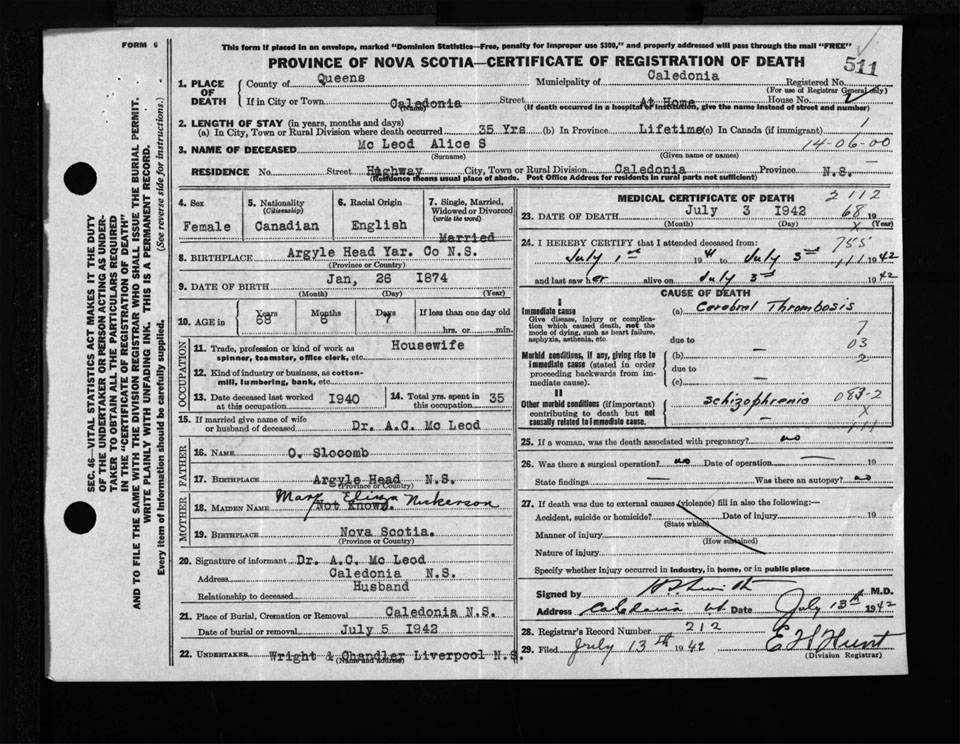 FORM 6
This form if placed in an envelope, marked "Dominion Statistics—Free, penalty for improper use $300," and properly addressed will pass through the mail "FREE"
PROVINCE OF NOVA SCOTIA—CERTIFICATE OF REGISTRATION OF DEATH
511
1. PLACE OF DEATH County of Queens Municipality of Caledonia Registered No.
(For use of Registrar General only)
If in City or Town Caledonia Street At Home House No.
(Name) (If death occurred in a hospital or institution, give the name instead of street and number)
2. LENGTH OF STAY (in years, months and days)
(a) In City, Town or Rural Division where death occurred 35 Yrs (b) In Province Lifetime (c) In Canada (if immigrant) 1
3. NAME OF DECEASED Mc Leod Alice S 14-06-00
(Surname) (Given name or names)
RESIDENCE No. Street Highway City, Town or Rural Division Caledonia Province N.S.
(Residence means usual place of abode. Post Office Address for residents in rural parts not sufficient)
4. Sex Female
5. Nationality (Citizenship) Canadian
6. Racial Origin English
7. Single, Married, Widowed or Divorced (write the word) Married
8. BIRTHPLACE Argyle Head Yar. Co N.S.
(Province or Country)
9. DATE OF BIRTH Jan, 26 1874
(Month) (Day) (Year)
10. AGE in Years Months Days If less than one day old
68 6 7 hrs. or min.
OCCUPATION
11. Trade, profession or kind of work as spinner, teamster, office clerk, etc. Housewife
12. Kind of industry or business, as cotton-mill, lumbering, bank, etc.
13. Date deceased last worked at this occupation 1940
14. Total yrs. spent in this occupation 35
15. If married give name of wife or husband of deceased Dr. A.C. Mc Leod
FATHER
16. NAME O. Slocomb
17. BIRTHPLACE Argyle Head N.S.
(Province or Country)
MOTHER
Mary Eliza Nickerson
18. MAIDEN NAME Not Known.
19. BIRTHPLACE Nova Scotia.
(Province or Country)
20. Signature of informant Dr. A.C. Mc Leod
Address Caledonia N.S.
Relationship to deceased Husband
21. Place of Burial, Cremation or Removal Caledonia N.S.
Date of burial or removal July 5 1942
22. UNDERTAKER Wright & Chandler Liverpool N.S.
(Name and address)
MEDICAL CERTIFICATE OF DEATH 2112
23. DATE OF DEATH July 3 1942
(Month) (Day) (Year)
68 19
X
24. I HEREBY CERTIFY that I attended deceased from: 755
July 1st 19 to July 3rd 1942
111
and last saw her alive on July 3rd 1942
CAUSE OF DEATH
I
Immediate cause
Give disease, injury or complication which caused death, not the mode of dying, such as heart failure, asphyxia, asthenia, etc.
(a) Cerebral Thrombosis
7
due to 03
Morbid conditions, if any, giving rise to immediate cause (stated in order proceeding backwards from immediate cause).
(b) 2
due to
(c)
II
Other morbid conditions (if important) contributing to death but not causally related to immediate cause.
Schizophrenia 083-2
X
111
25. If a woman, was the death associated with pregnancy? no
26. Was there a surgical operation? no Date of operation 19
State findings Was there an autopsy? no
27. If death was due to external causes (violence) fill in also the following:—
Accident, suicide or homicide? Date of injury 19
(State which)
Manner of injury
(How sustained)
Nature of injury
Specify whether injury occurred in industry, in home, or in public place
Signed by M.D.
Address Caledonia Date July 13th 1942
28. Registrar's Record Number 212
29. Filed July 13th 1942 E Hunt
(Division Registrar)
SEC. 46—VITAL STATISTICS ACT MAKES IT THE DUTY
OF THE UNDERTAKER OR PERSON ACTING AS UNDER-
TAKER TO OBTAIN ALL THE PARTICULARS REQUIRED
IN THE "CERTIFICATE OF REGISTRATION OF DEATH"
AND TO FILE THE SAME WITH THE DIVISION REGISTRAR WHO SHALL ISSUE THE BURIAL PERMIT.
WRITE PLAINLY WITH UNFADING INK. THIS IS A PERMANENT RECORD.
Every item of information should be carefully supplied. (See reverse side for instructions.)